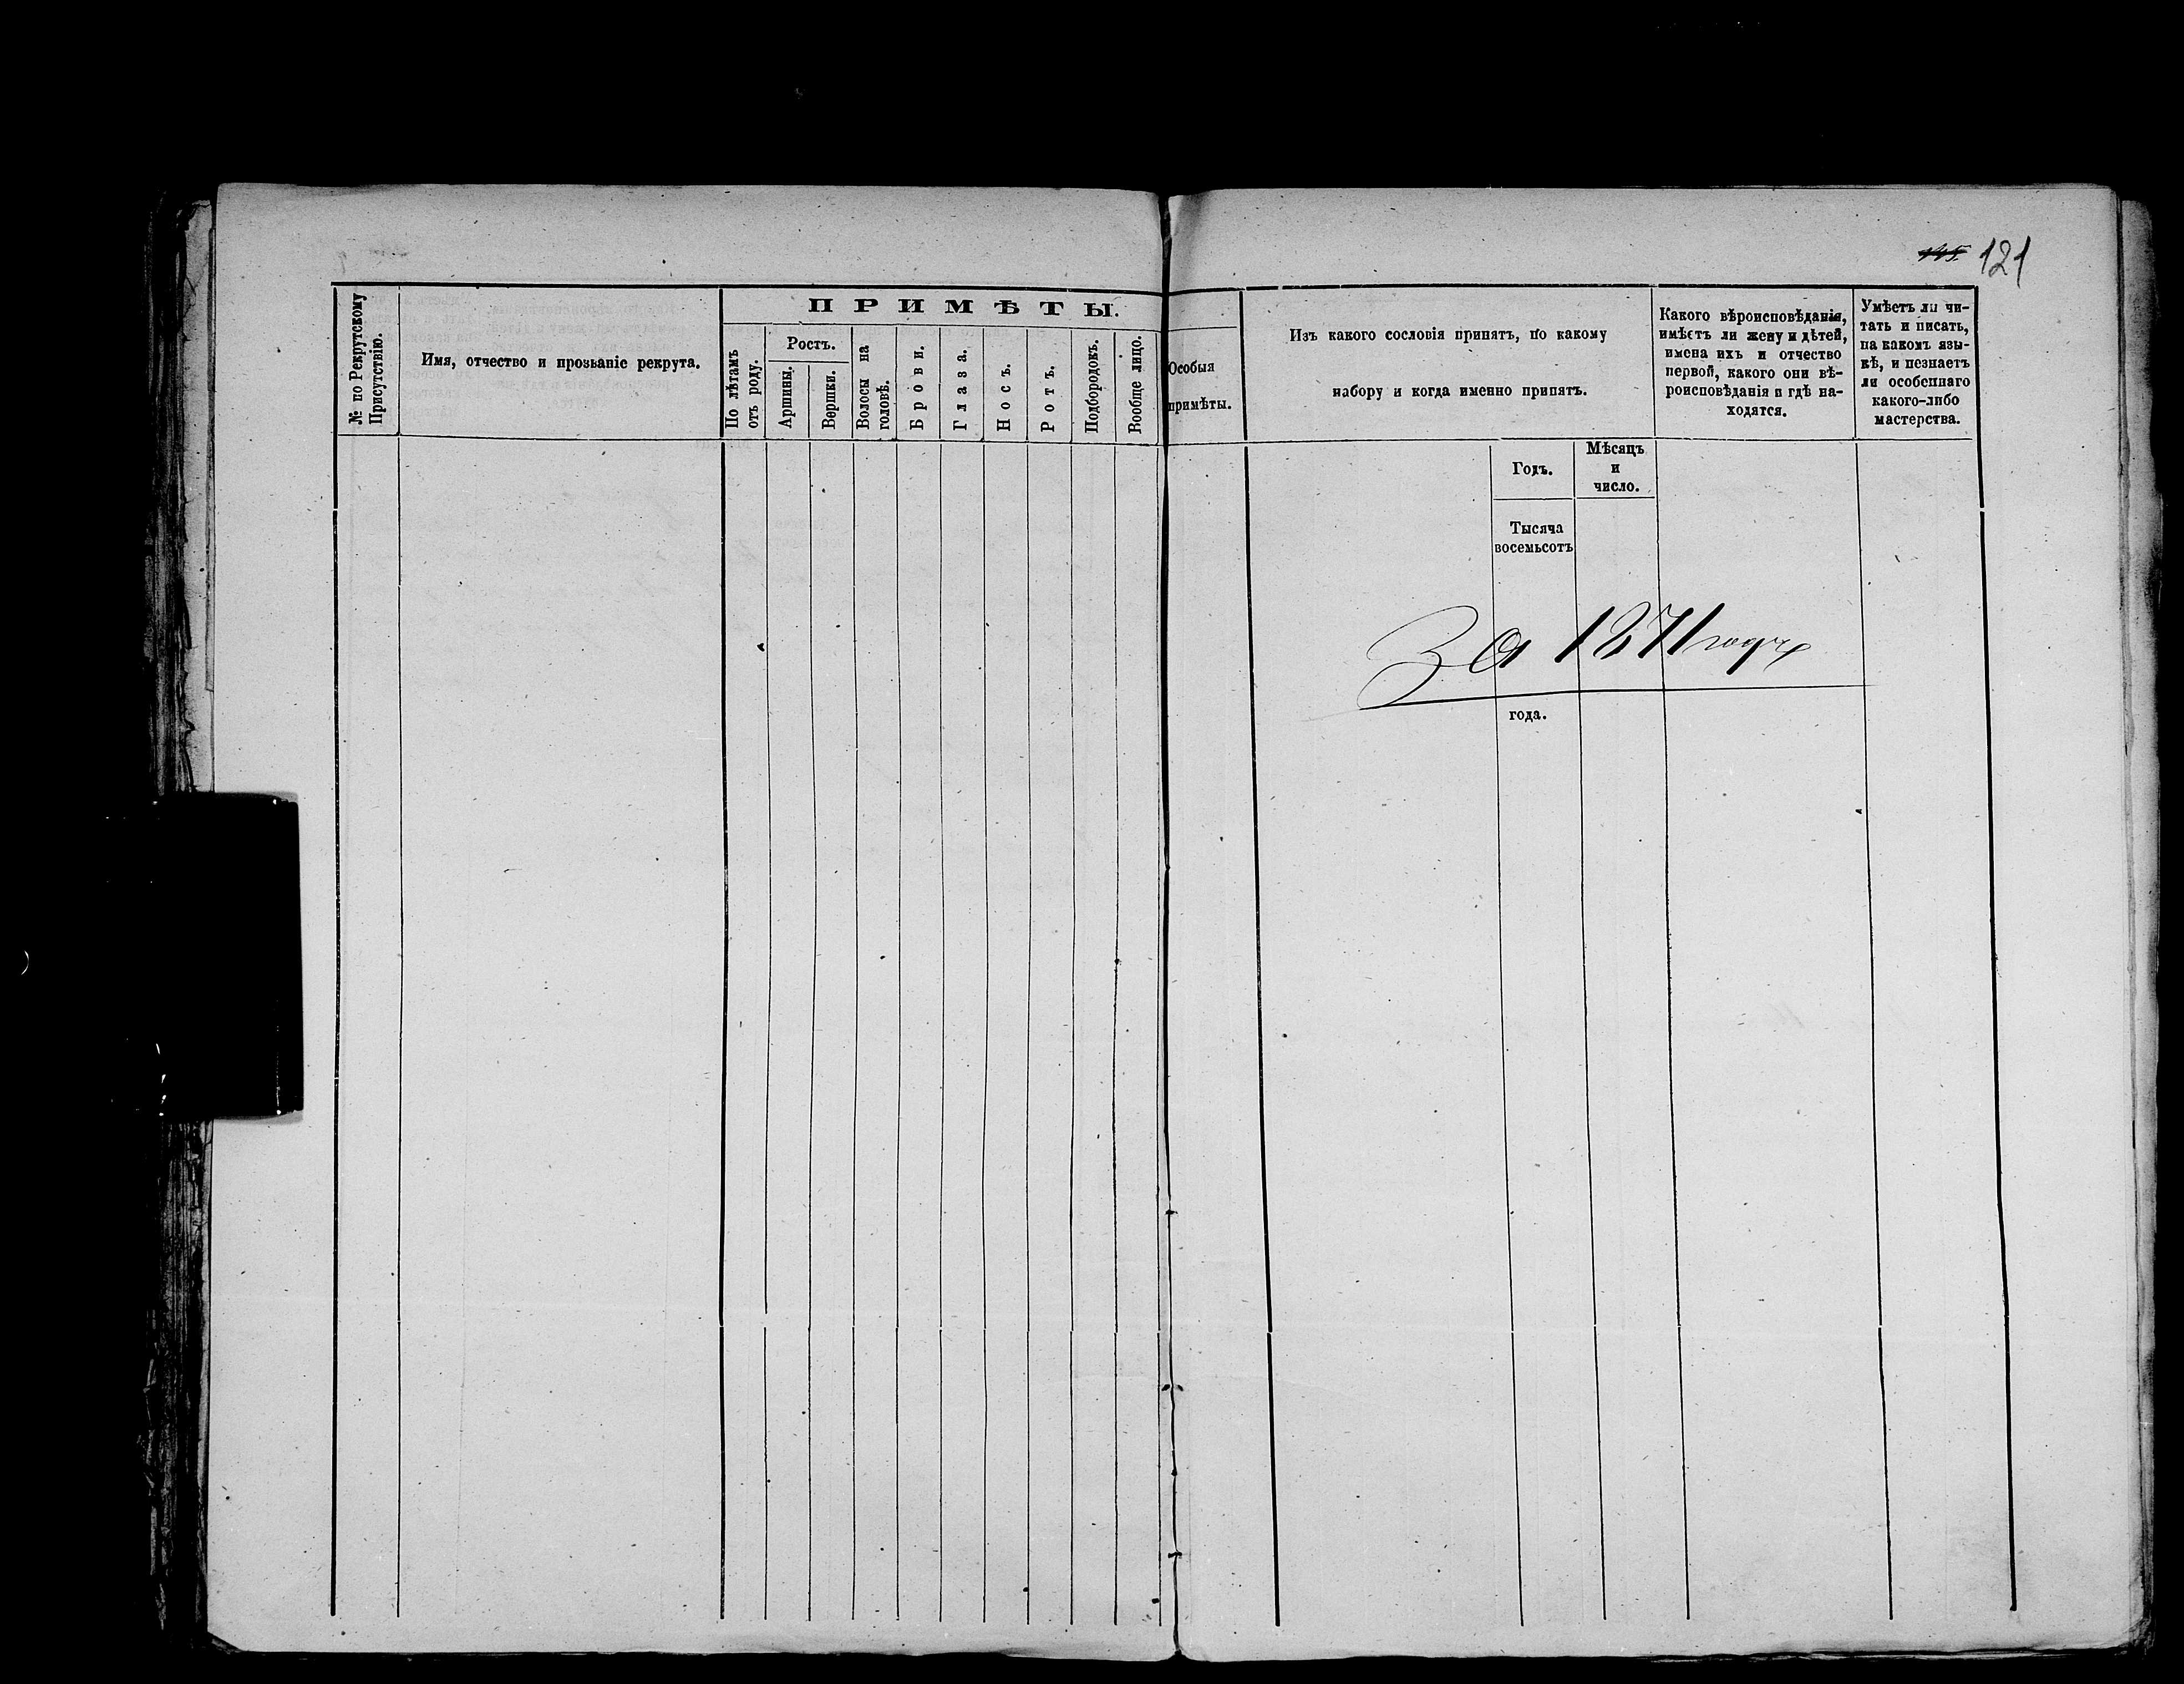 121
№ по Рекрутскому
Присутствію.
Имя, отчество и прозваніе рекрута.
ПРИМѢТЫ.
По лѣтамъ
отъ роду.
Ростъ.
Аршины.
Вершки.
Волосы на
головѣ.
Брови.
Глаза.
Носъ.
Ротъ.
Подбородокъ.
Вообще лицо.
Особыя
примѣты.
Изъ какого сословія принятъ, по какому
набору и когда именно принятъ.
Какого вѣроисповѣданія,
имѣетъ ли жену и дѣтей,
имена ихъ и отчество
первой, какого они вѣ-
роисповѣданія и гдѣ на-
ходятся.
Умѣетъ ли чи-
тать и писать,
на какомъ язы-
кѣ, и незнаетъ
ли особеннаго
какого-либо
мастерства.
Годъ.
Мѣсяцъ
и
число.
Тысяча
восемьсотъ
За 1871 годъ
года.